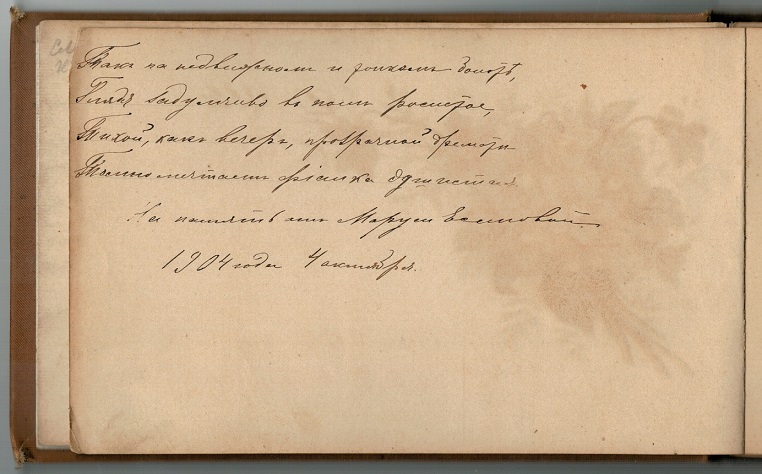 Такъ на недвижномъ и тихомъ болотѣ,
Глядя задумчиво въ поле росистое,
Тихой, какъ вечеръ, прозрачной дремоты
мечтаетъ фіалка душистая
На память отъ Маруси
1904 года 4 октября.